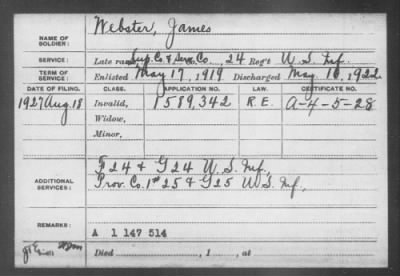 NAME OF SOLDIER: Webster, James
SERVICE: Late rank Sup. Co. & Serv. Co., 24 Reg't U.S. Inf.
TERM OF SERVICE: Enlisted May 17, 1919 Discharged May 16, 1922
DATE OF FILING. CLASS. APPLICATION NO. LAW. CERTIFICATE NO.
1927 Aug. 18 Invalid, 1589,342 R.E. A-4-5-28
Widow,
Minor,
ADDITIONAL SERVICES: F 24 & G 24 U.S. Inf.,
Prov. Co. 1 & 25 & G 25 U.S. Inf.,
REMARKS: A 1 147 514
Died , 1 , at